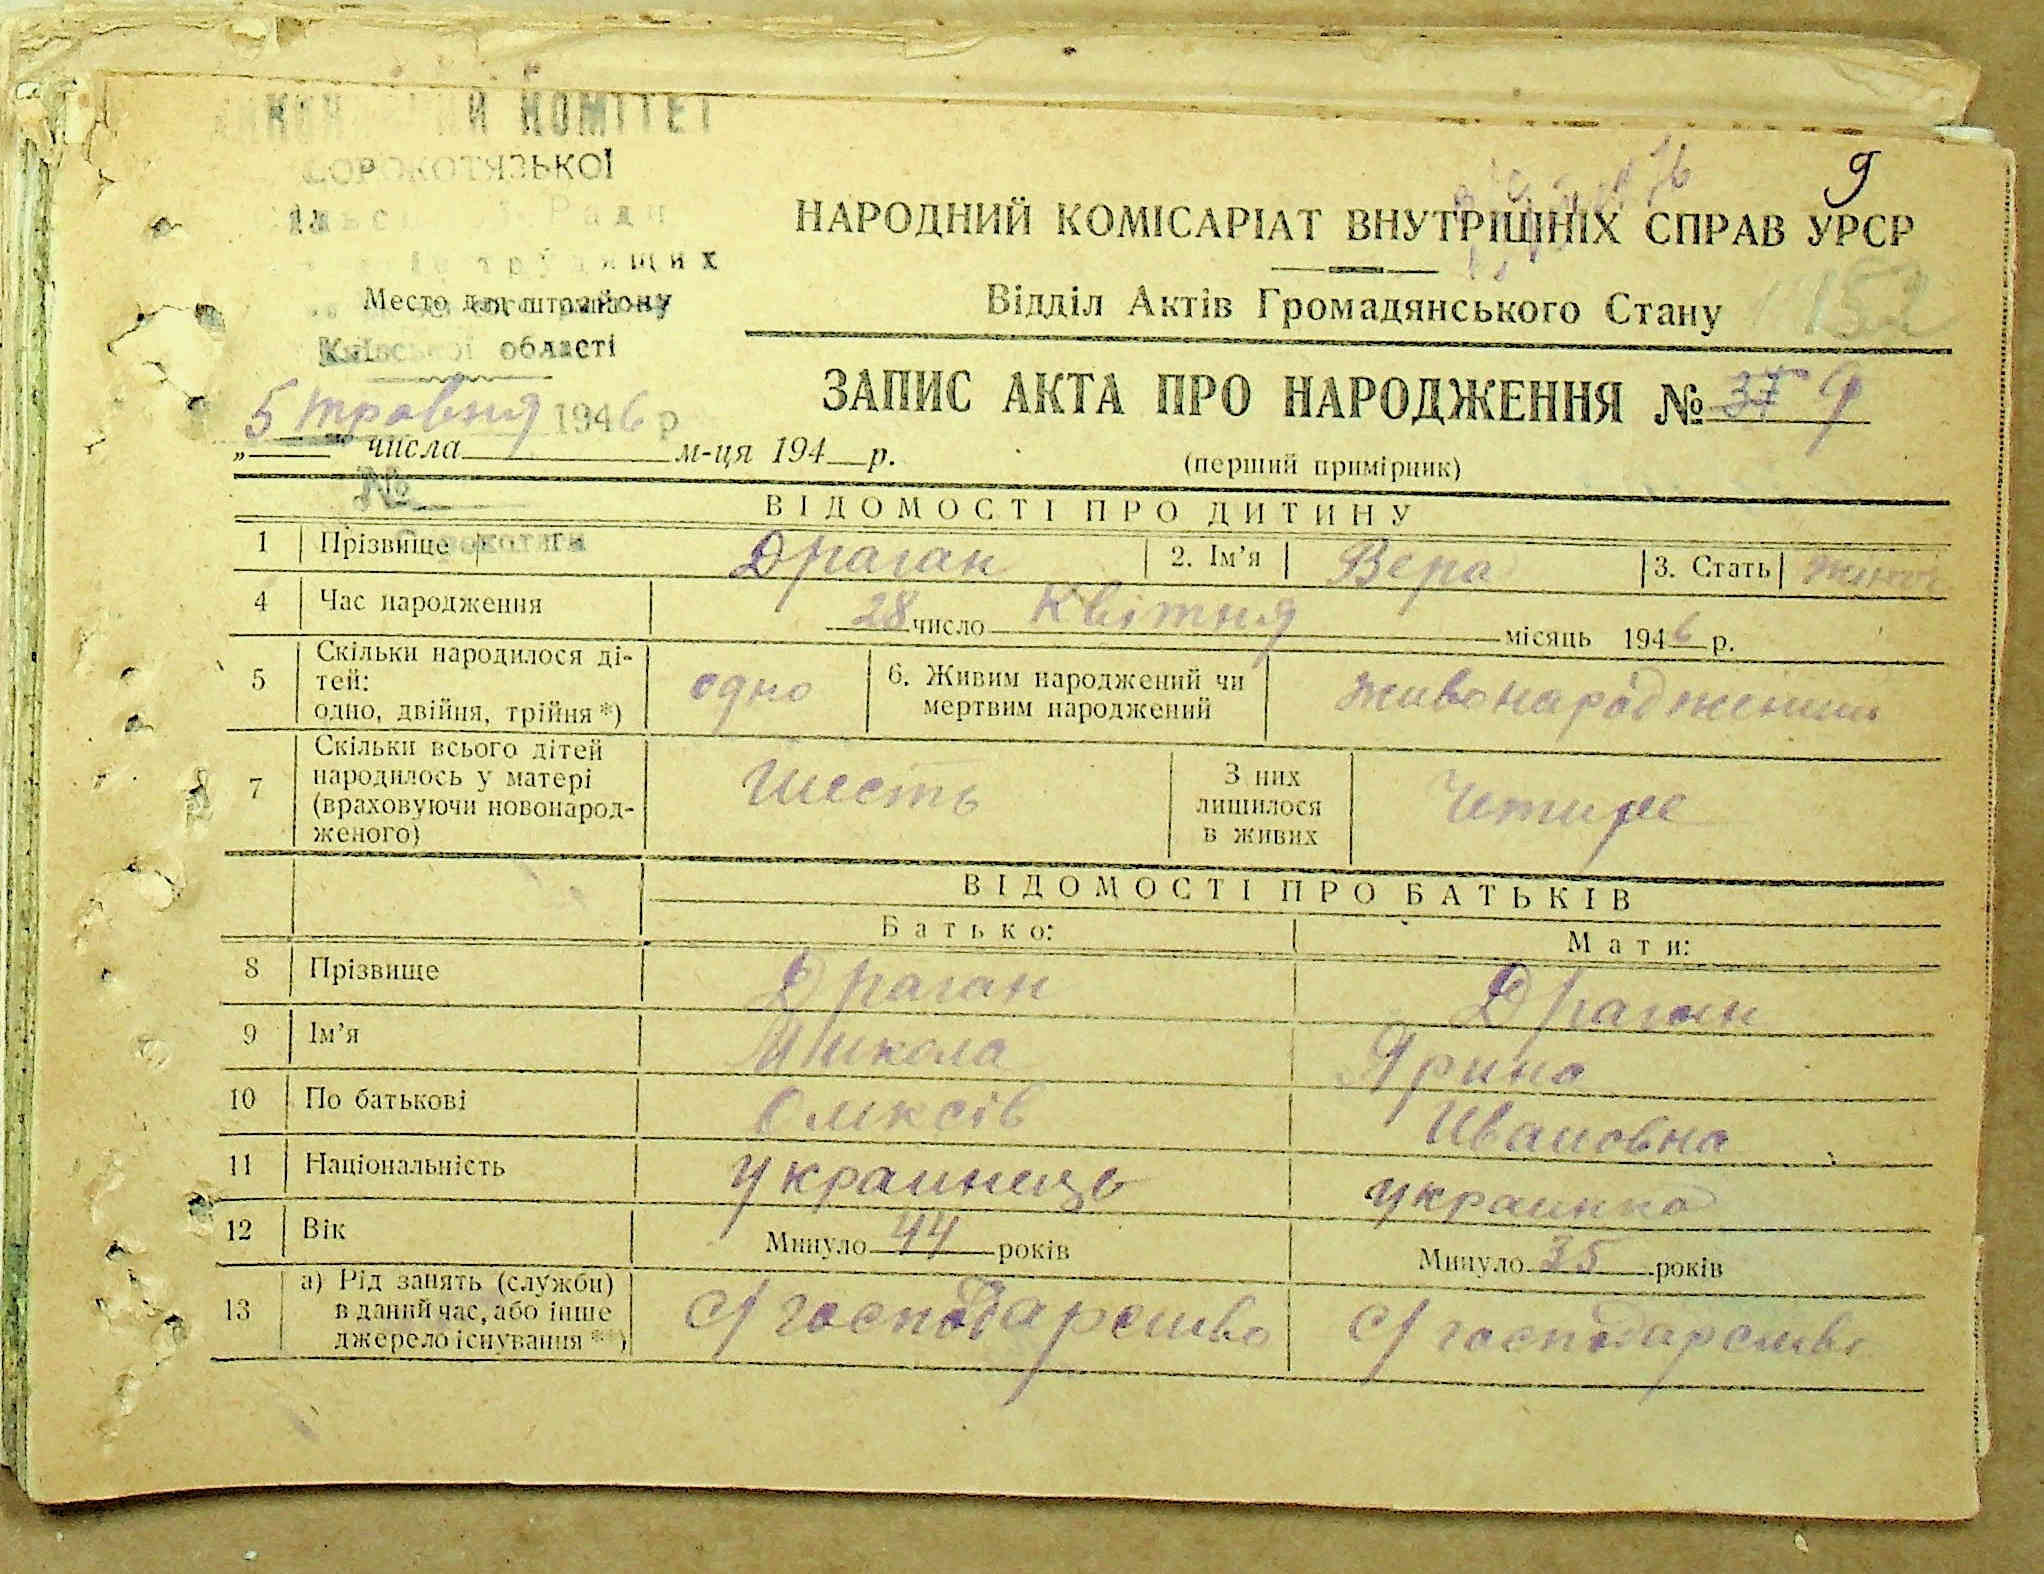 КОМІТЕТ
СОРОКОТЯЗЬКОЇ
Ради
9
НАРОДНИЙ КОМІСАРІАТ ВНУТРІШНІХ СПРАВ УРСР
Место для штампа району
Відділ Актів Громадянського Стану
152
Київської області
ЗАПИС АКТА ПРО НАРОДЖЕННЯ № 37 9
5 травня 1946 р
„ “ числа м-ця 194 р.
(перший примірник)
№
ВІДОМОСТІ ПРО ДИТИНУ
1 Прізвище Драган 2. Ім’я Вера 3. Стать
4 Час народження 28 число Квітня місяць 1946 р.
5 Скільки народилося ді-
тей:
одно, двійня, трійня *) одно 6. Живим народжений чи
мертвим народжений живонароджений
7 Скільки всього дітей
народилось у матері
(враховуючи новонарод-
женого) шесть З них
лишилося
в живих Четире
ВІДОМОСТІ ПРО БАТЬКІВ
Батько: Мати:
8 Прізвище Драган Драган
9 Ім’я Микола Ярина
10 По батькові Олексів Ивановна
11 Національність украинець украинка
12 Вік Минуло 44 років Минуло 35 років
13 а) Рід занять (служби)
в даний час, або інше
джерело існування **) с/господарство с/господарство